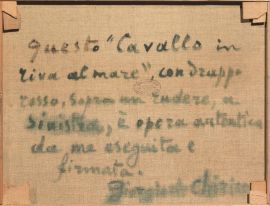 Questo "Cavallo in
riva al mare", con drappo
rosso, sopra un rudere, a
sinistra, è opera autentica
da me eseguita e
firmata.
Giorgio de Chirico